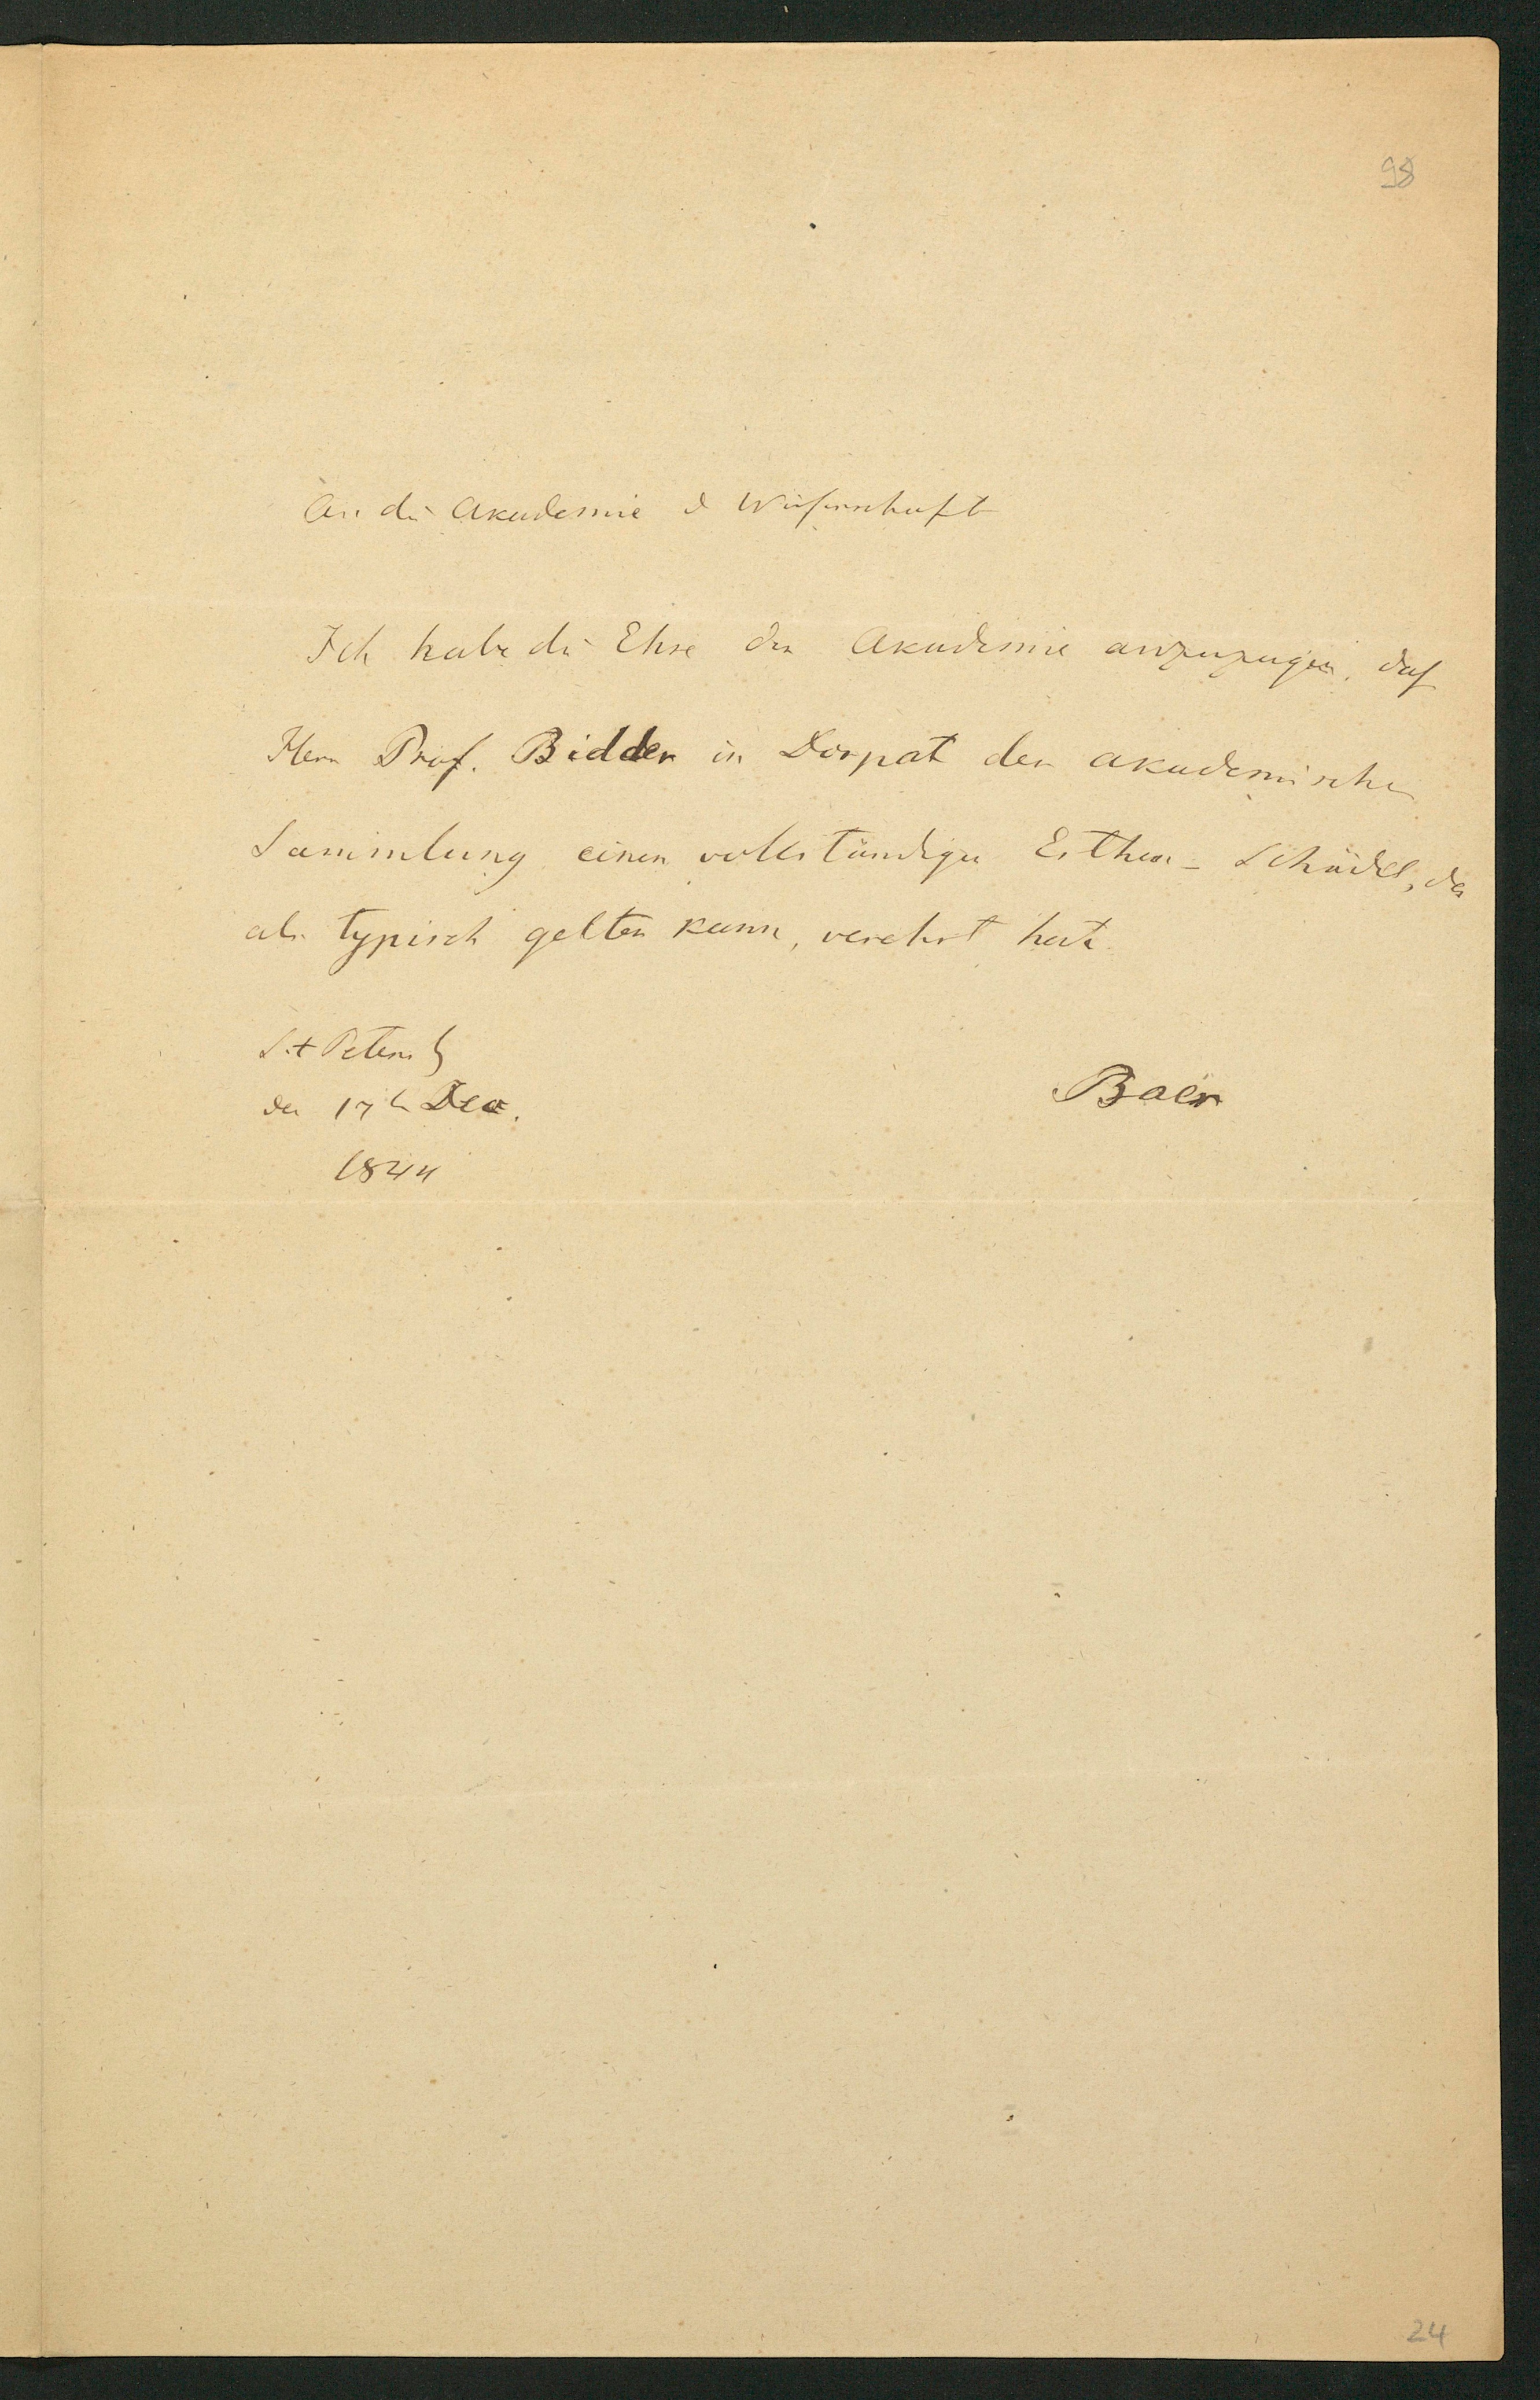 98
An die Akademie d Wißenschaft
Ich habe die Ehre der Akademie anzuzeigen, daß
Herr Prof. Bidder in Dorpat der akademischen
Sammlung einen vollständigen Esthen-Schädel, der
als typisch gelten kann, verehrt hat.
St Petersb
den 17n Dec.
1844
Baer
24